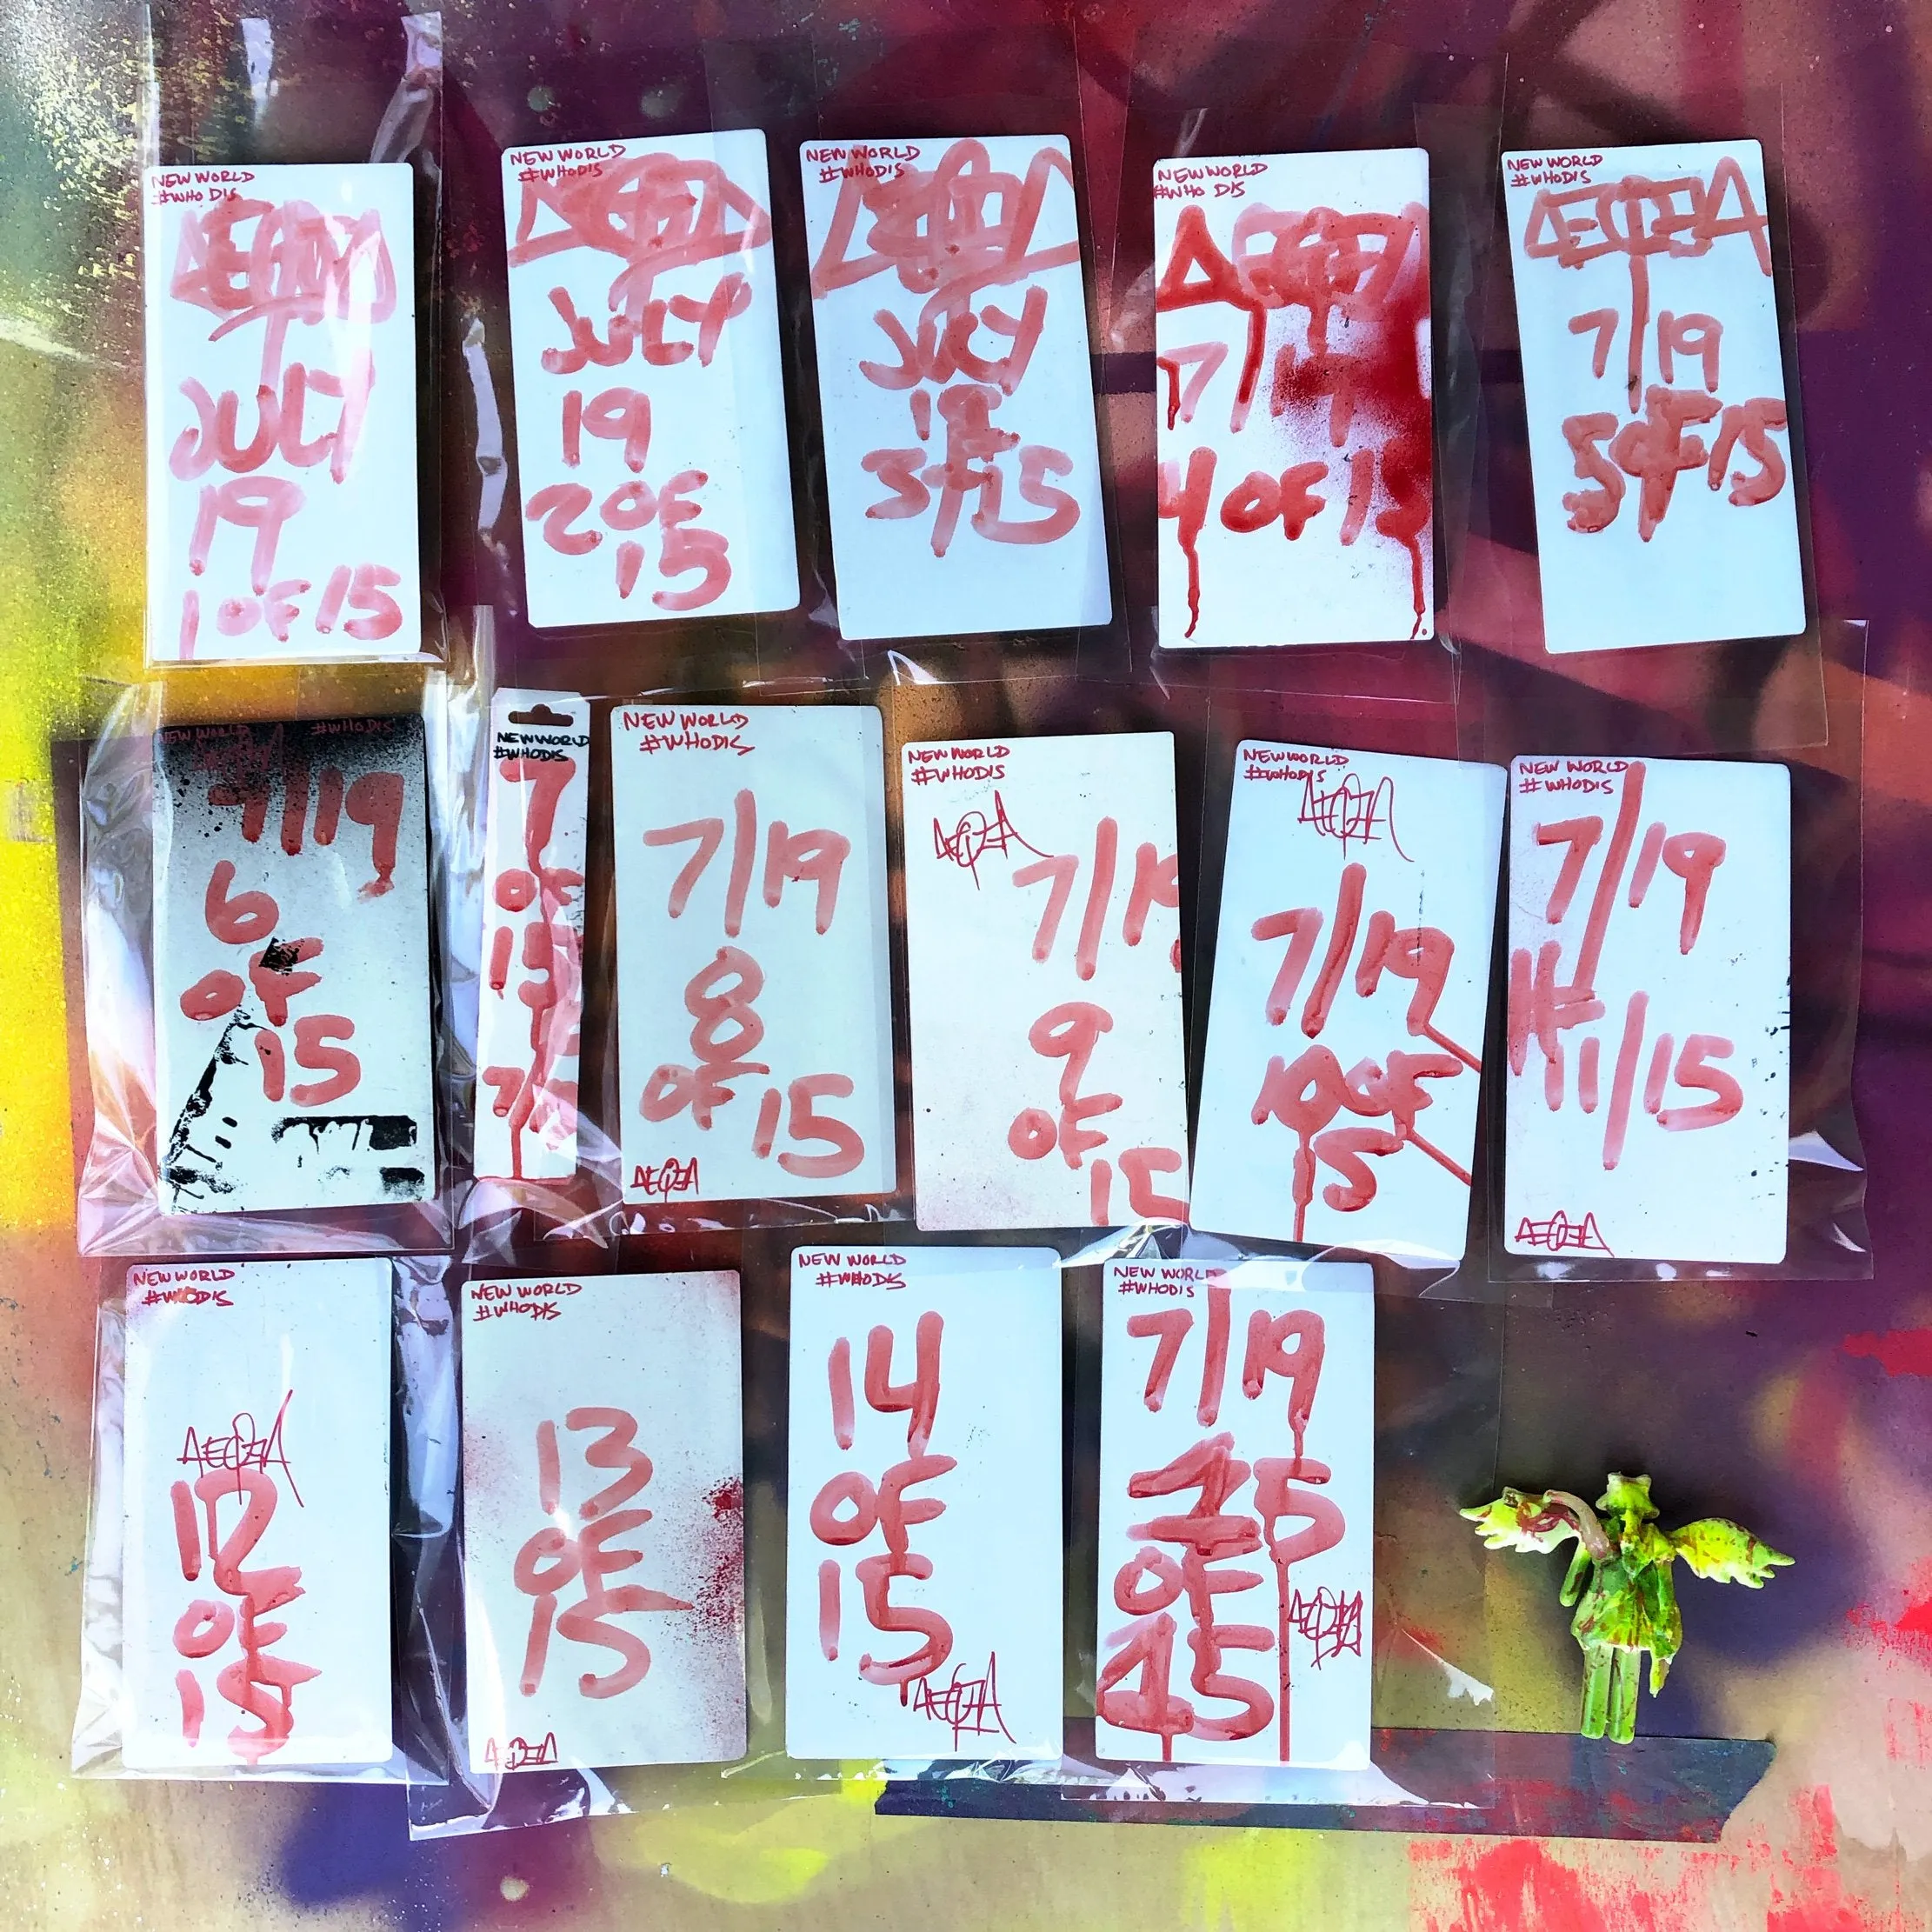 NEW WORLD
#WHO DIS
JULY
19
1 OF 15
NEW WORLD
#WHODIS
JULY
19
2 OF
15
NEW WORLD
#WHODIS
JULY
19
3 OF 15
NEW WORLD
#WHO DIS
7/19
4 OF 15
NEW WORLD
#WHODIS
7/19
5 OF 15
NEW WORLD #WHODIS
7/19
6
OF
15
NEW WORLD
#WHODIS
7
OF
15
NEW WORLD
#WHODIS
7/19
8
OF 15
NEW WORLD
#WHODIS
7/19
9
OF
15
NEW WORLD
#WHODIS
7/19
10 OF
15
NEW WORLD
#WHODIS
7/19
11/15
NEW WORLD
#WHODIS
12
OF
15
NEW WORLD
#WHODIS
13
OF
15
NEW WORLD
#WHODIS
14
OF
15
NEW WORLD
#WHODIS
7/19
15
OF
15